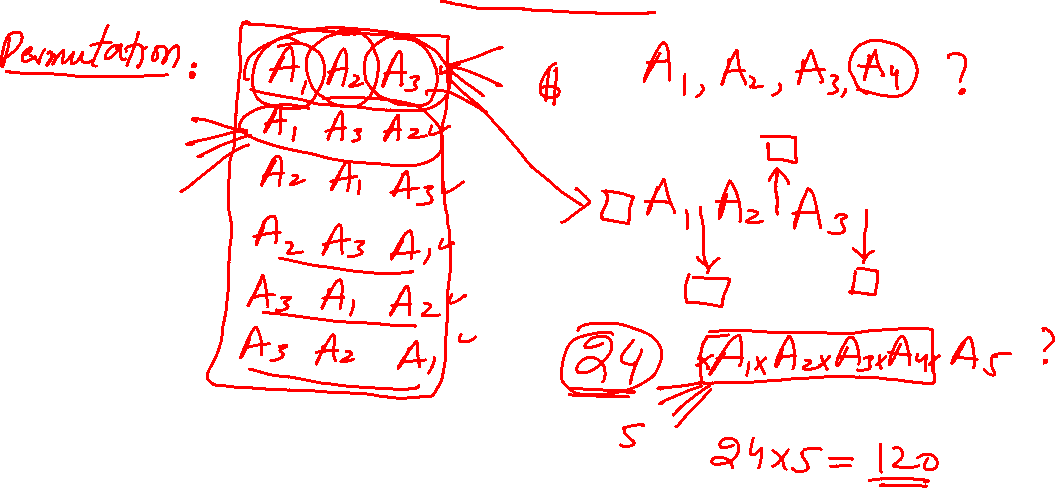 Permutation.
A1 A2 A3
A1 A3 A2
A2 A1 A3
A2 A3 A1
A3 A1 A2
A3 A2 A1
A1, A2, A3, A4 ?
A1 A2 A3
24
×A1×A2×A3×A4× A5 ?
5
24×5 = 120